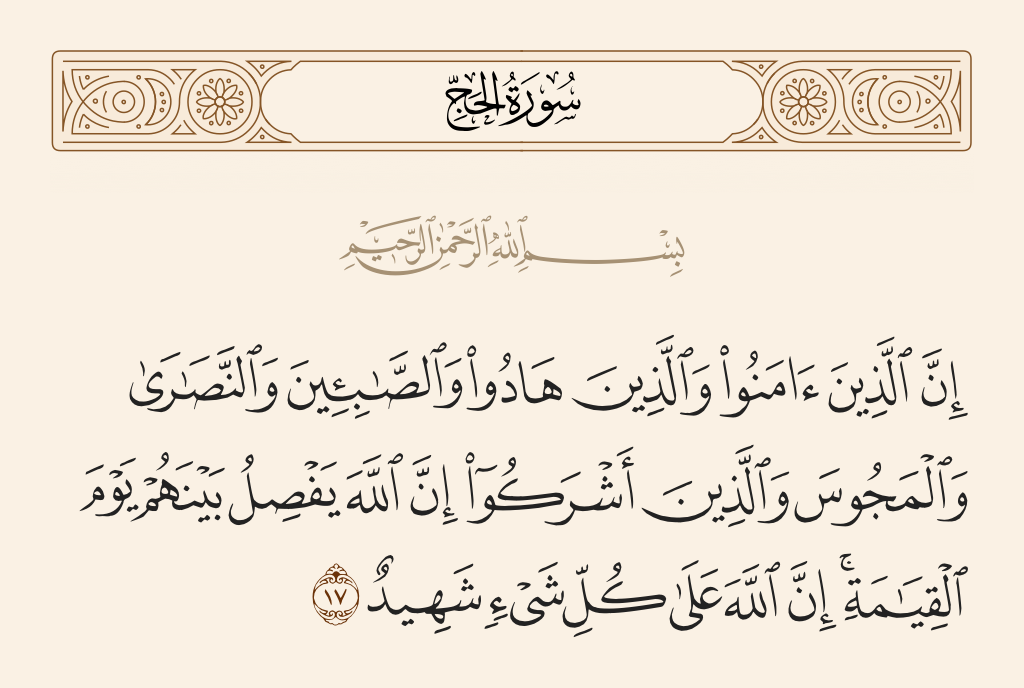 سُورَةُ الحَجِّ
بِسْمِ ٱللَّهِ ٱلرَّحْمَٰنِ ٱلرَّحِيمِ
إِنَّ ٱلَّذِينَ ءَامَنُوا۟ وَٱلَّذِينَ هَادُوا۟ وَٱلصَّـٰبِـِٔينَ وَٱلنَّصَـٰرَىٰ
وَٱلْمَجُوسَ وَٱلَّذِينَ أَشْرَكُوٓا۟ إِنَّ ٱللَّهَ يَفْصِلُ بَيْنَهُمْ يَوْمَ
ٱلْقِيَـٰمَةِ ۚ إِنَّ ٱللَّهَ عَلَىٰ كُلِّ شَىْءٍ شَهِيدٌ ١٧